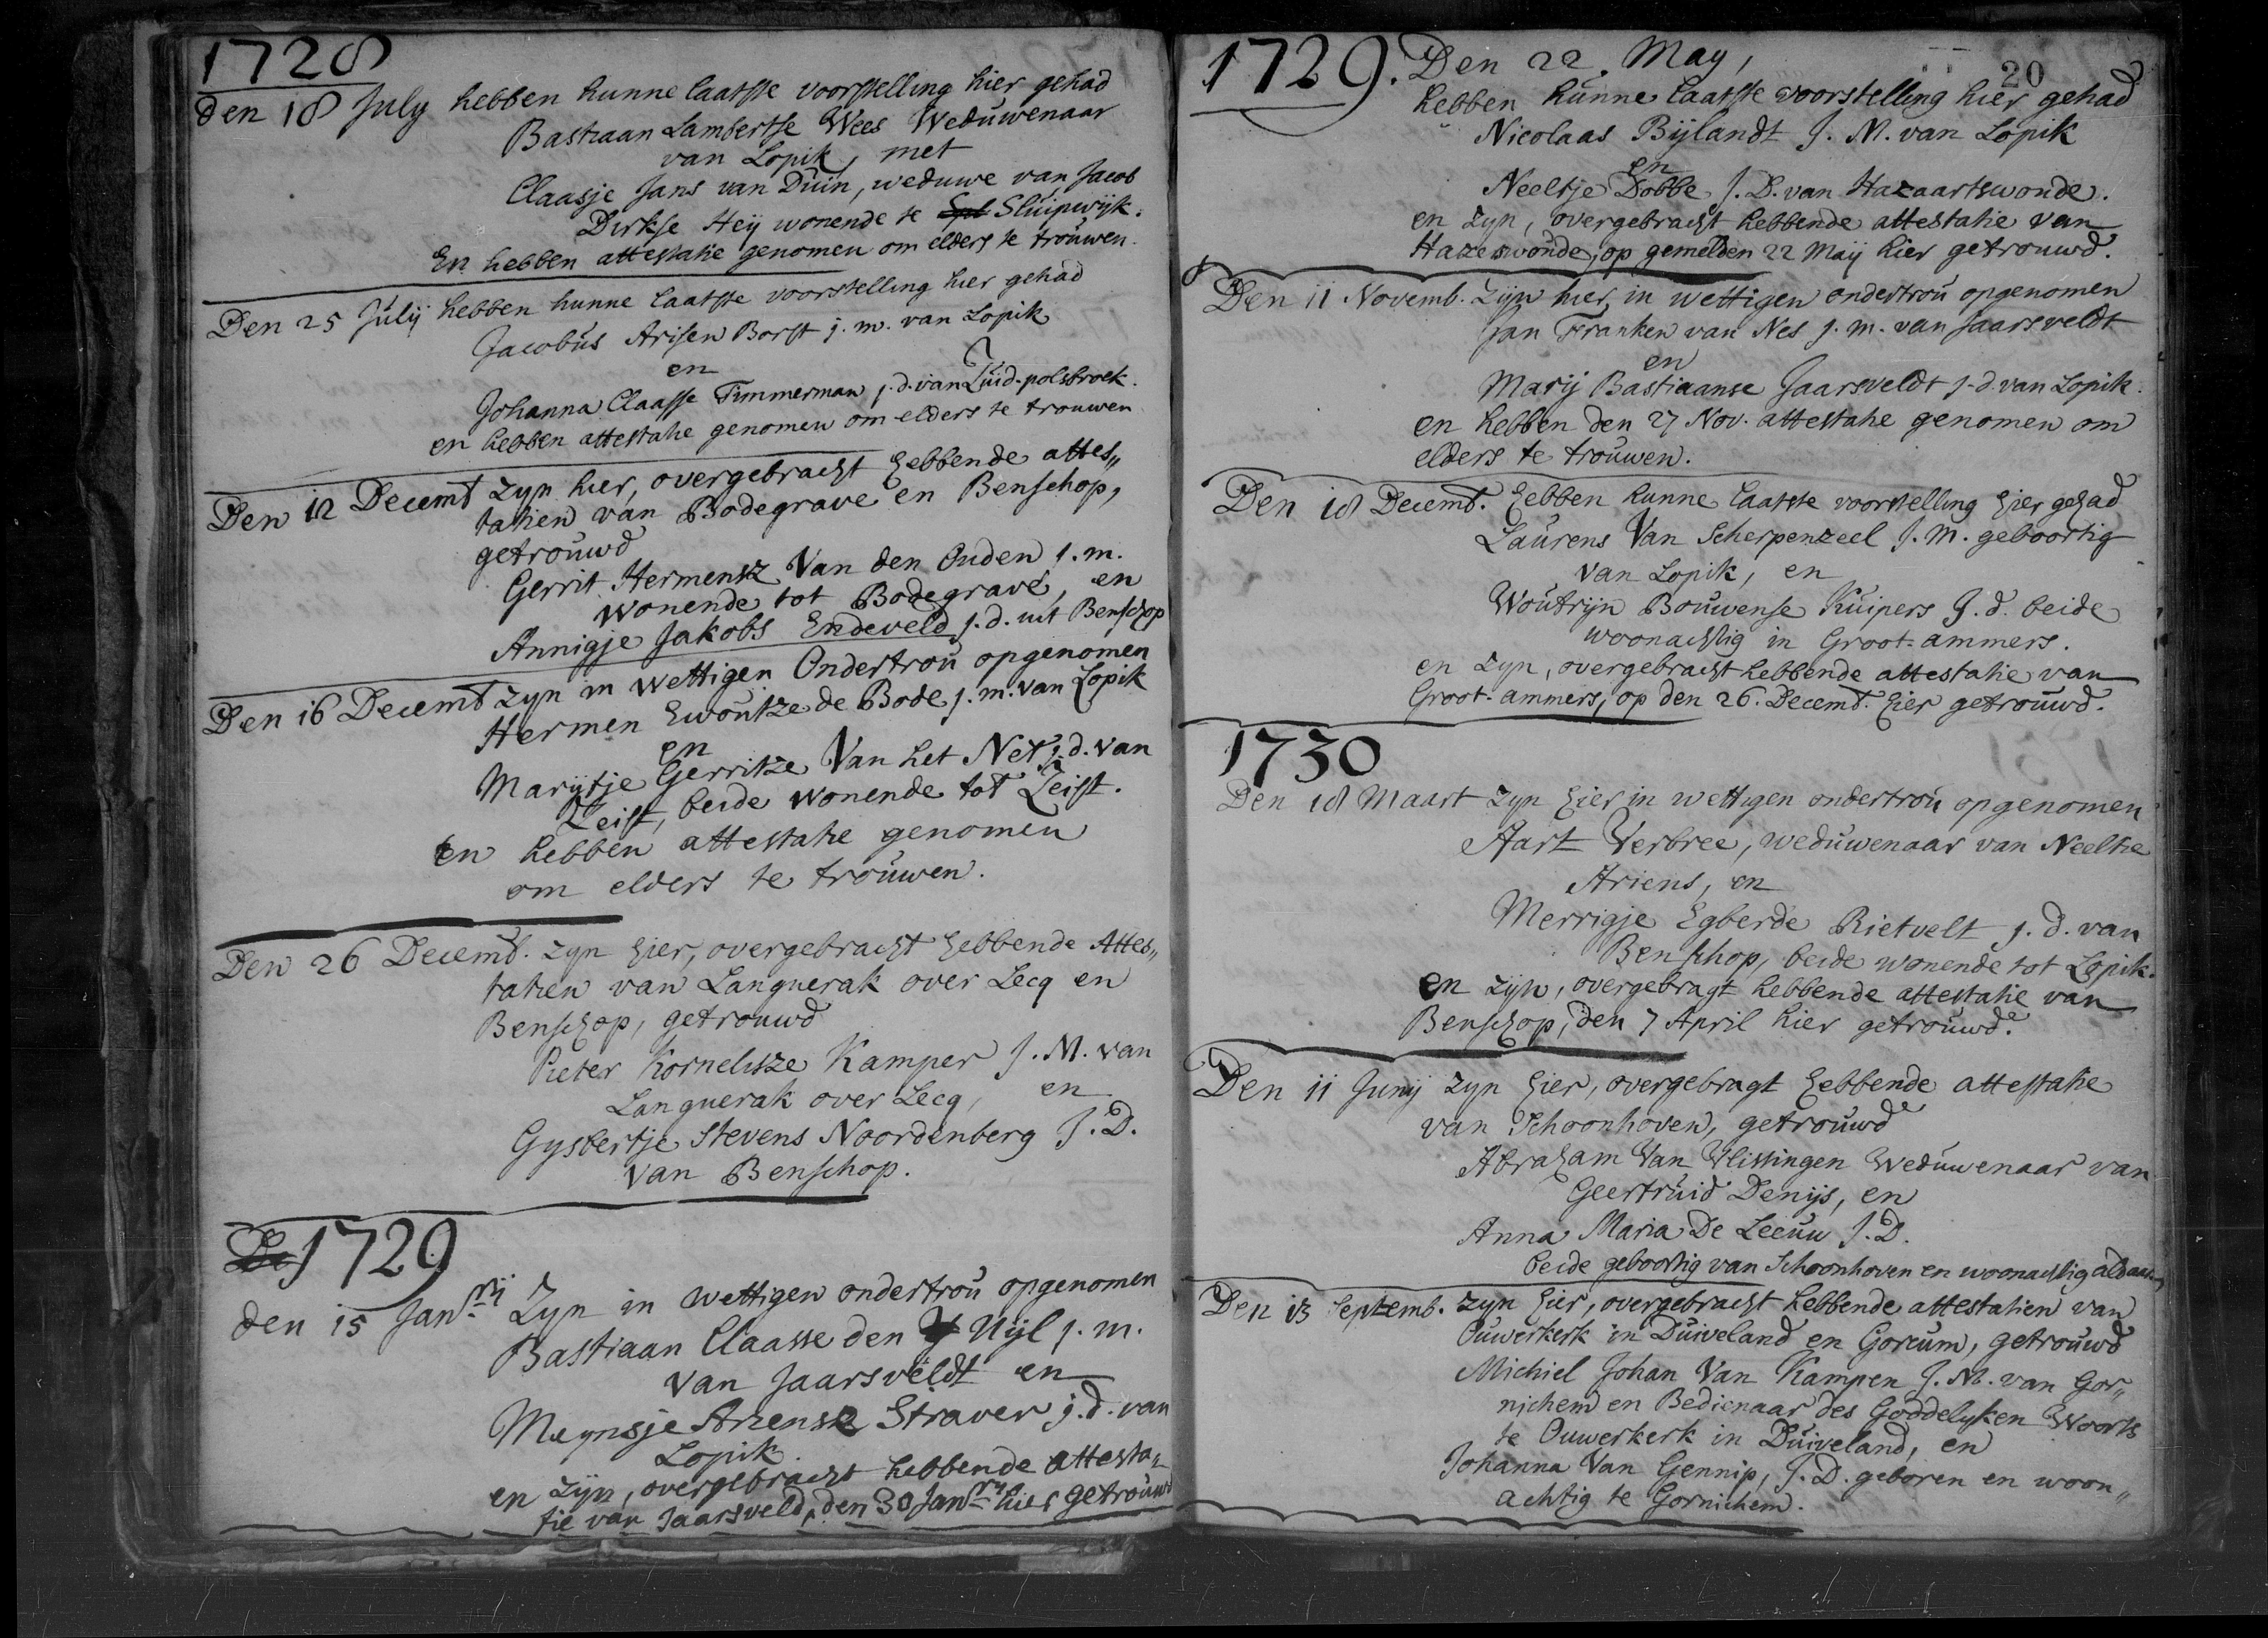 1728
den 18 July hebben hunne laatste voorstelling hier gehad
Bastiaan Lambertse Wees Weduwenaar
van Lopik, met
Claasje Jans van Duin, weduwe van Jacob
Dirkse Heij wonende te Spl Sluipwijk.
En hebben attestatie genomen om elders te trouwen.
Den 25 Julij hebben hunne laatste voorstelling hier gehad
Jacobus Arisen Borst j. m. van Lopik
en
Johanna Claasse Timmerman j. d. van Zuid-polsbroek.
en hebben attestatie genomen om elders te trouwen
Den 12 Decemb zyn hier, overgebracht hebbende attes„
tatien van Bodegrave en Benschop,
getrouwd
Gerrit Hermensz Van den Ouden j. m.
wonende tot Bodegrave, en
Annigje Jakobs Endeveld j. d. uit Benschop
Den 16 Decemb zyn in wettigen Ondertrou opgenomen
Hermen Ewoutze de Bode j. m. van Lopik
en
Marijtje Gerritze Van het Net j. d. van
Zeist, beide wonende tot Zeist.
en hebben attestatie genomen
om elders te trouwen.
Den 26 Decemb. zyn hier, overgebracht hebbende Attes„
tatien van Languerak over Lecq en
Benschop, getrouwd
Pieter Kornelisze Kamper J. M. van
Languerak over Lecq, en
Gysbertje Stevens Noordenberg J. D.
van Benschop.
De 1729
den 15 Janrij Zyn in wettigen ondertrou opgenomen
Bastiaan Claasse den Uijl j. m.
van Jaarsveldt en
Meynsje Ariensz Straver j. d. van
Lopik.
en zijn, overgebracht hebbende attesta„
tie van Jaarsveld, den 30 Janry hier getrouwd
1729. Den 22. May, 20
hebben hunne laatste voorstelling hier gehad
Nicolaas Bijlandt J. M. van Lopik
en
Neeltje Dobbe J. D. van Hazaartswonde.
en zyn, overgebracht hebbende attestatie van
Hazeswonde, op gemelden 22 Maij hier getrouwd.
Den 11 Novemb. Zijn hier in wettigen ondertrou opgenomen
Jan Franken van Nes j. m. van Jaarsveldt
en
Marij Bastiaanse Jaarsveldt j. d. van Lopik.
en hebben den 27 Nov. attestatie genomen om
elders te trouwen.
Den 18 Decemb. hebben hunne laatste voorstelling hier gehad
Laurens Van Scherpenzeel J. M. geboortig
van Lopik, en
Woutrijn Bouwense Kuipers J. d. beide
woonachtig in Groot-ammers.
en zyn, overgebracht hebbende attestatie van
Groot-ammers, op den 26. Decemb. hier getrouwd.
1730
Den 18 Maart zyn hier in wettigen ondertrou opgenomen
Aart Verbree, weduwenaar van Neeltie
Ariens, en
Merrigje Egberde Rietvelt j. d. van
Benschop, beide wonende tot Lopik.
en zijn, overgebragt hebbende attestatie van
Benschop, den 7 April hier getrouwd.
Den 11 Junij zyn hier, overgebragt hebbende attestatie
van Schoonhoven, getrouwd
Abraham Van Vlissingen Weduwenaar van
Geertruid Denijs, en
Anna Maria De Leeuw J. D.
beide geboortig van Schoonhoven en woonachtig aldaar
Den 13 Septemb. zyn hier, overgebracht hebbende attestatien van
Ouwerkerk in Duiveland en Gorcum, getrouwd
Michiel Johan Van Kampen J. M. van Gor„
nichem en Bedienaar des Goddelyken Woorts
te Ouwerkerk in Duiveland, en
Johanna Van Gennip, J. D. geboren en woon„
achtig te Gornichem.